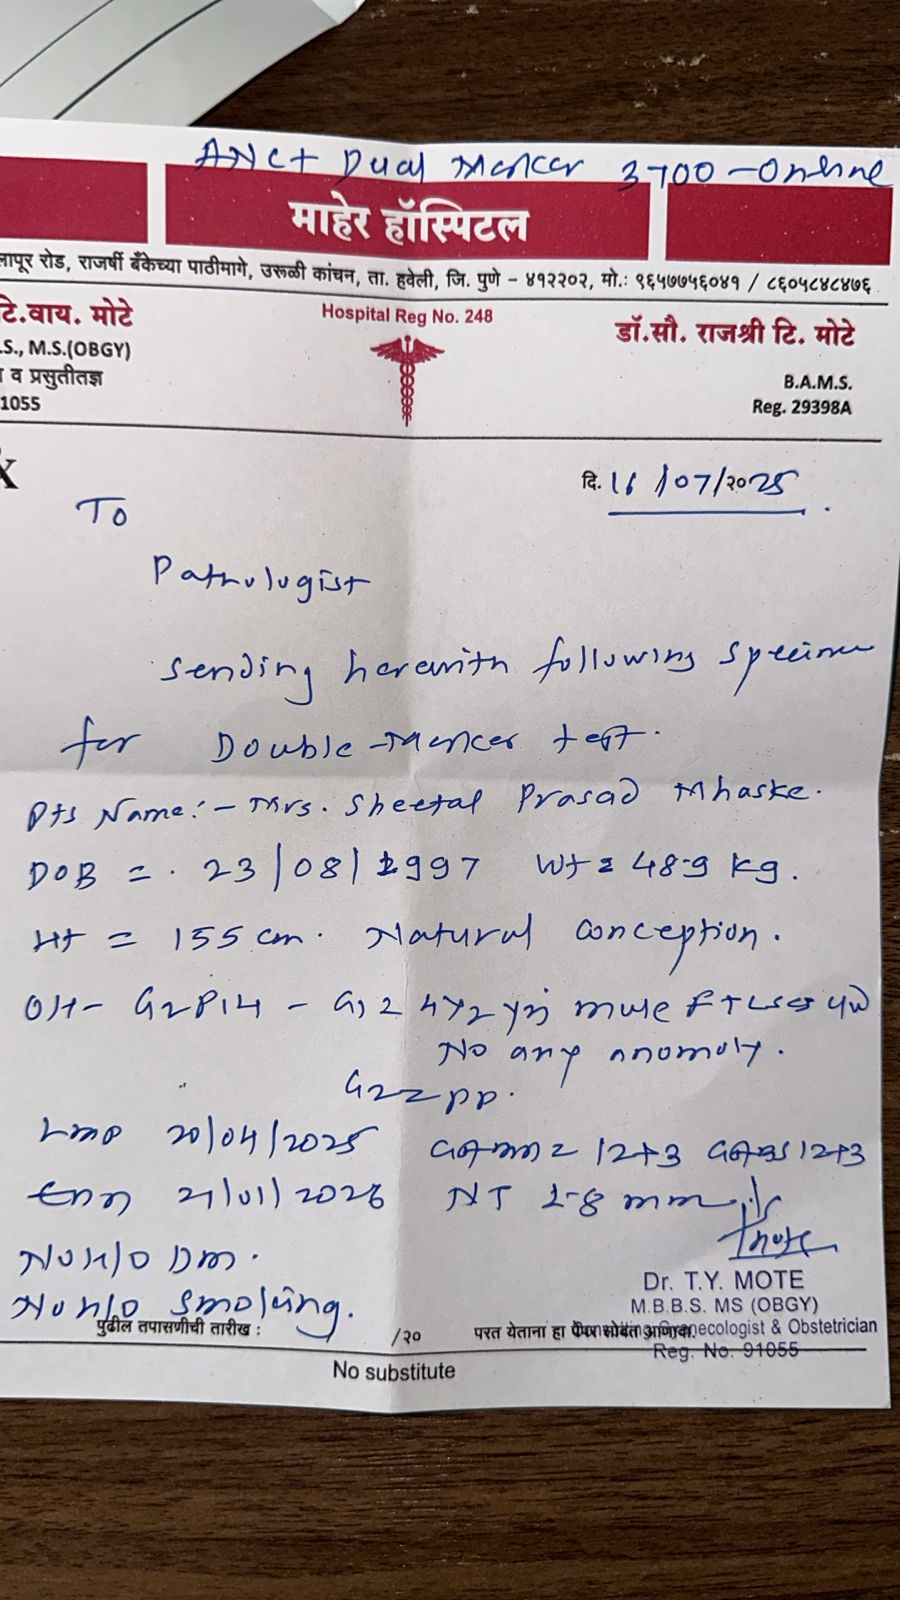 ANC+ Dual Marker 3700 - Online
माहेर हॉस्पिटल
लापूर रोड, राजर्षी बँकेच्या पाठीमागे, उरूळी कांचन, ता. हवेली, जि. पुणे - ४१२२०२, मो.: ९६५७७५६०४१ / ८६०५८४८४७६
टि.वाय. मोटे
.S., M.S.(OBGY)
व प्रसुतीतज्ञ
1055
Hospital Reg No. 248
डॉ.सौ. राजश्री टि. मोटे
B.A.M.S.
Reg. 29398A
दि. 16/07/२०25
To
Pathologist
Sending herewith following specimen
for Double-Marker test.
Pts Name:- Mrs. Sheetal Prasad Mhaske.
DOB = 23/08/1997 Wt = 48.9 kg.
Ht = 155 cm. Natural conception.
OH- G2P1L1 - G1 = male
No any anomoly.
G2 = pp.
LMP 20/04/2025 12+3 12+3
21/01/2026 NT 1.8 mm
No H/O DM.
No H/O Smoking.
Dr. T.Y. MOTE
M.B.B.S. MS (OBGY)
Gynecologist & Obstetrician
Reg. No. 91055
पुढील तपासणीची तारीख : /२० परत येताना हा पेपर सोबत आणावा.
No substitute